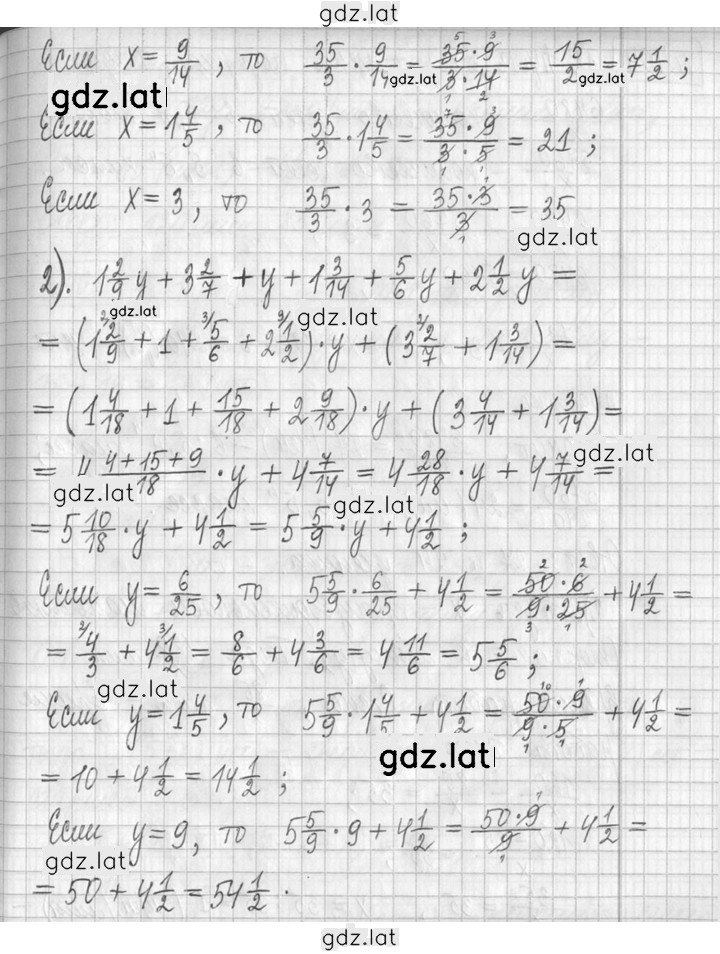 gdz.lat
Если x = 9/14, то 35/3 · 9/14 = 35·9/3·14 = 15/2 = 7 1/2 ;
gdz.lat gdz.lat
gdz.lat
Если x = 1 4/5, то 35/3 · 1 4/5 = 35·9/3·5 = 21 ;
Если x = 3, то 35/3 · 3 = 35·3/3 = 35
gdz.lat
2). 1 2/9 y + 3 2/7 + y + 1 3/14 + 5/6 y + 2 1/2 y =
gdz.lat gdz.lat
= (1 2/9 + 1 + 5/6 + 2 1/2) · y + (3 2/7 + 1 3/14) =
= (1 4/18 + 1 + 15/18 + 2 9/18) · y + (3 4/14 + 1 3/14) =
gdz.lat
= 4 4+15+9/18 · y + 4 7/14 = 4 28/18 · y + 4 7/14 =
gdz.lat gdz.lat
= 5 10/18 · y + 4 1/2 = 5 5/9 · y + 4 1/2 ;
Если y = 6/25, то 5 5/9 · 6/25 + 4 1/2 = 50·6/9·25 + 4 1/2 =
= 4/3 + 4 1/2 = 8/6 + 4 3/6 = 4 11/6 = 5 5/6 ;
gdz.lat
Если y = 1 4/5, то 5 5/9 · 1 4/5 + 4 1/2 = 50·9/9·5 + 4 1/2 =
gdz.lat
= 10 + 4 1/2 = 14 1/2 ;
Если y = 9, то 5 5/9 · 9 + 4 1/2 = 50·9/9 + 4 1/2 =
gdz.lat
= 50 + 4 1/2 = 54 1/2 .
gdz.lat